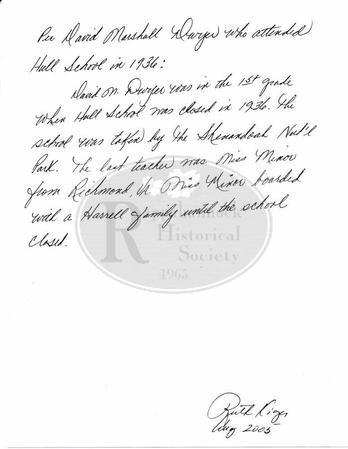 Per David Marshall Dwyer who attended
Hull School in 1936:
David M. Dwyer was in the 1st grade
when Hull School was closed in 1936. The
school was taken by the Shenandoah Nat'l
Park. The last teacher was Miss Minor
from Richmond, Va. Miss Minor boarded
with a Harrell family until the school
closed.
Historical
Society
1965
Ruth
Aug 2005